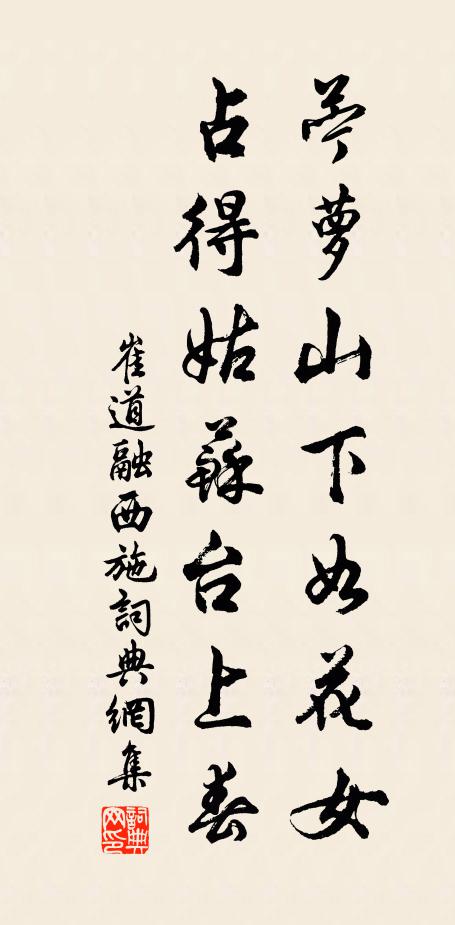 苧萝山下如花女
占得姑蘇台上春
崔道融西施詞典網集
詞典
网印